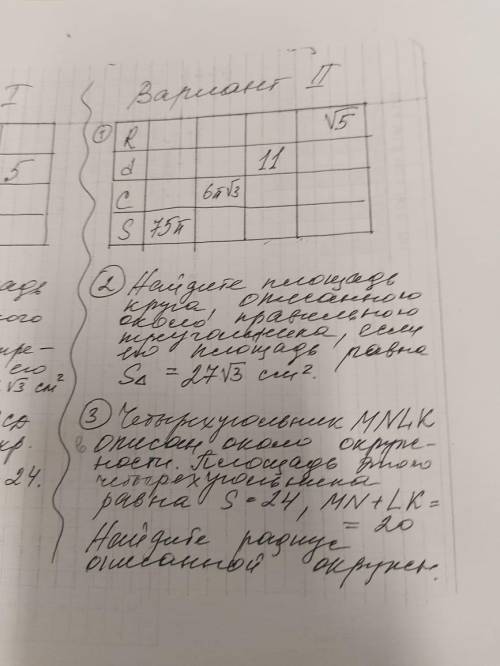 I
Вариант II
① R √5
5 d 11
C 6π√3
S 75π
② Найдите площадь
круга, описанного
около правильного
треугольника, если
его площадь равна
S△ = 27√3 см².
③ Четырёхугольник MNLK
описан около окруж-
ности. Площадь этого
четырехугольника
равна S = 24, MN + LK =
= 20
Найдите радиус
описанной окружн.
адь
ного
его
√3 см²
кр.
24.